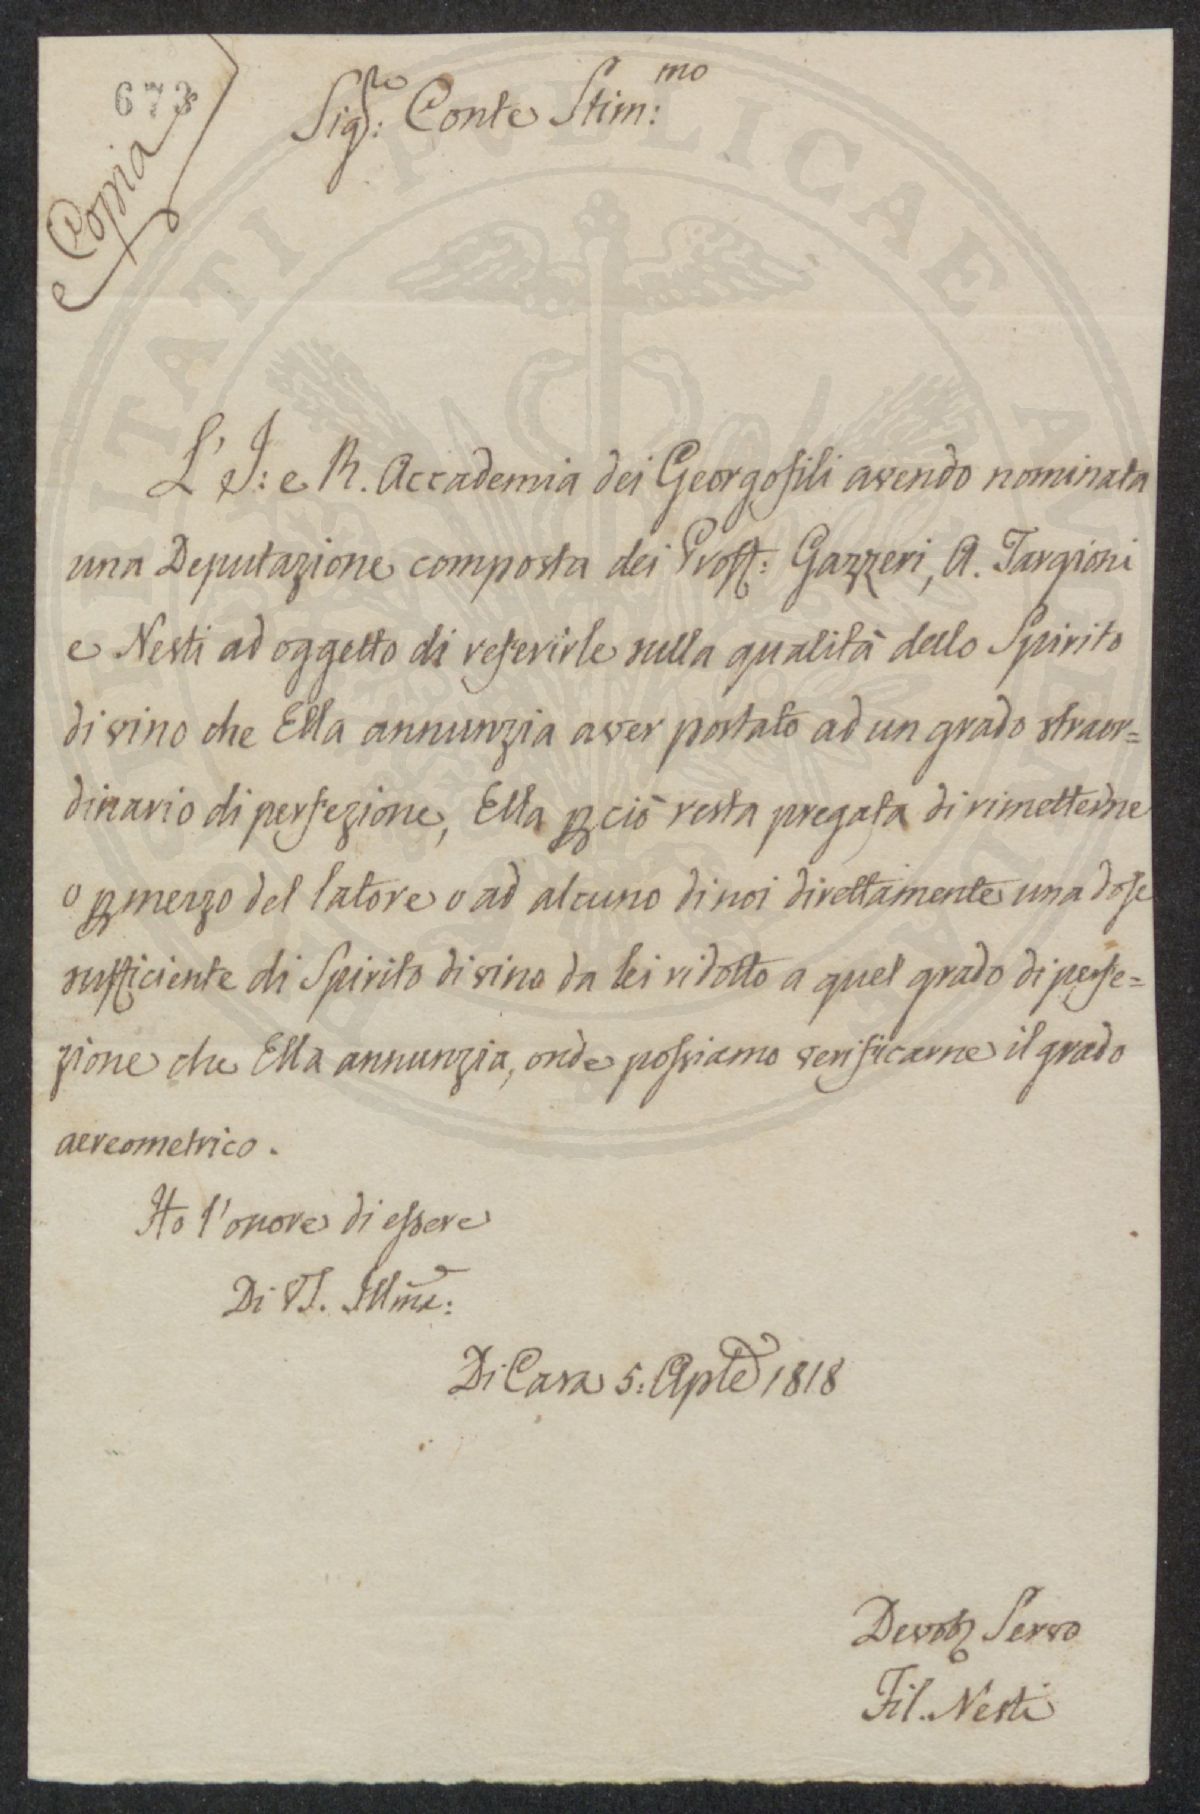 673
Copia
Sig:re Conte Stim:mo
L'I: e R. Accademia dei Georgofili avendo nominata
una Deputazione composta dei Proff: Gazzeri, A. Targioni
e Nesti ad oggetto di referirle sulla qualità dello Spirito
di vino che Ella annunzia aver portato ad un grado straor=
dinario di perfezione, Ella p ciò resta pregata di rimetterne
o p mezzo del latore o ad alcuno di noi direttamente una dose
sufficiente di Spirito di vino da lei ridotto a quel grado di perfe=
zione che Ella annunzia, onde possiamo verificarne il grado
aereometrico.
Ho l'onore di essere
Di VS. Illma:
Di Casa 5: Aple 1818
Devot Servo
Fil. Nesti